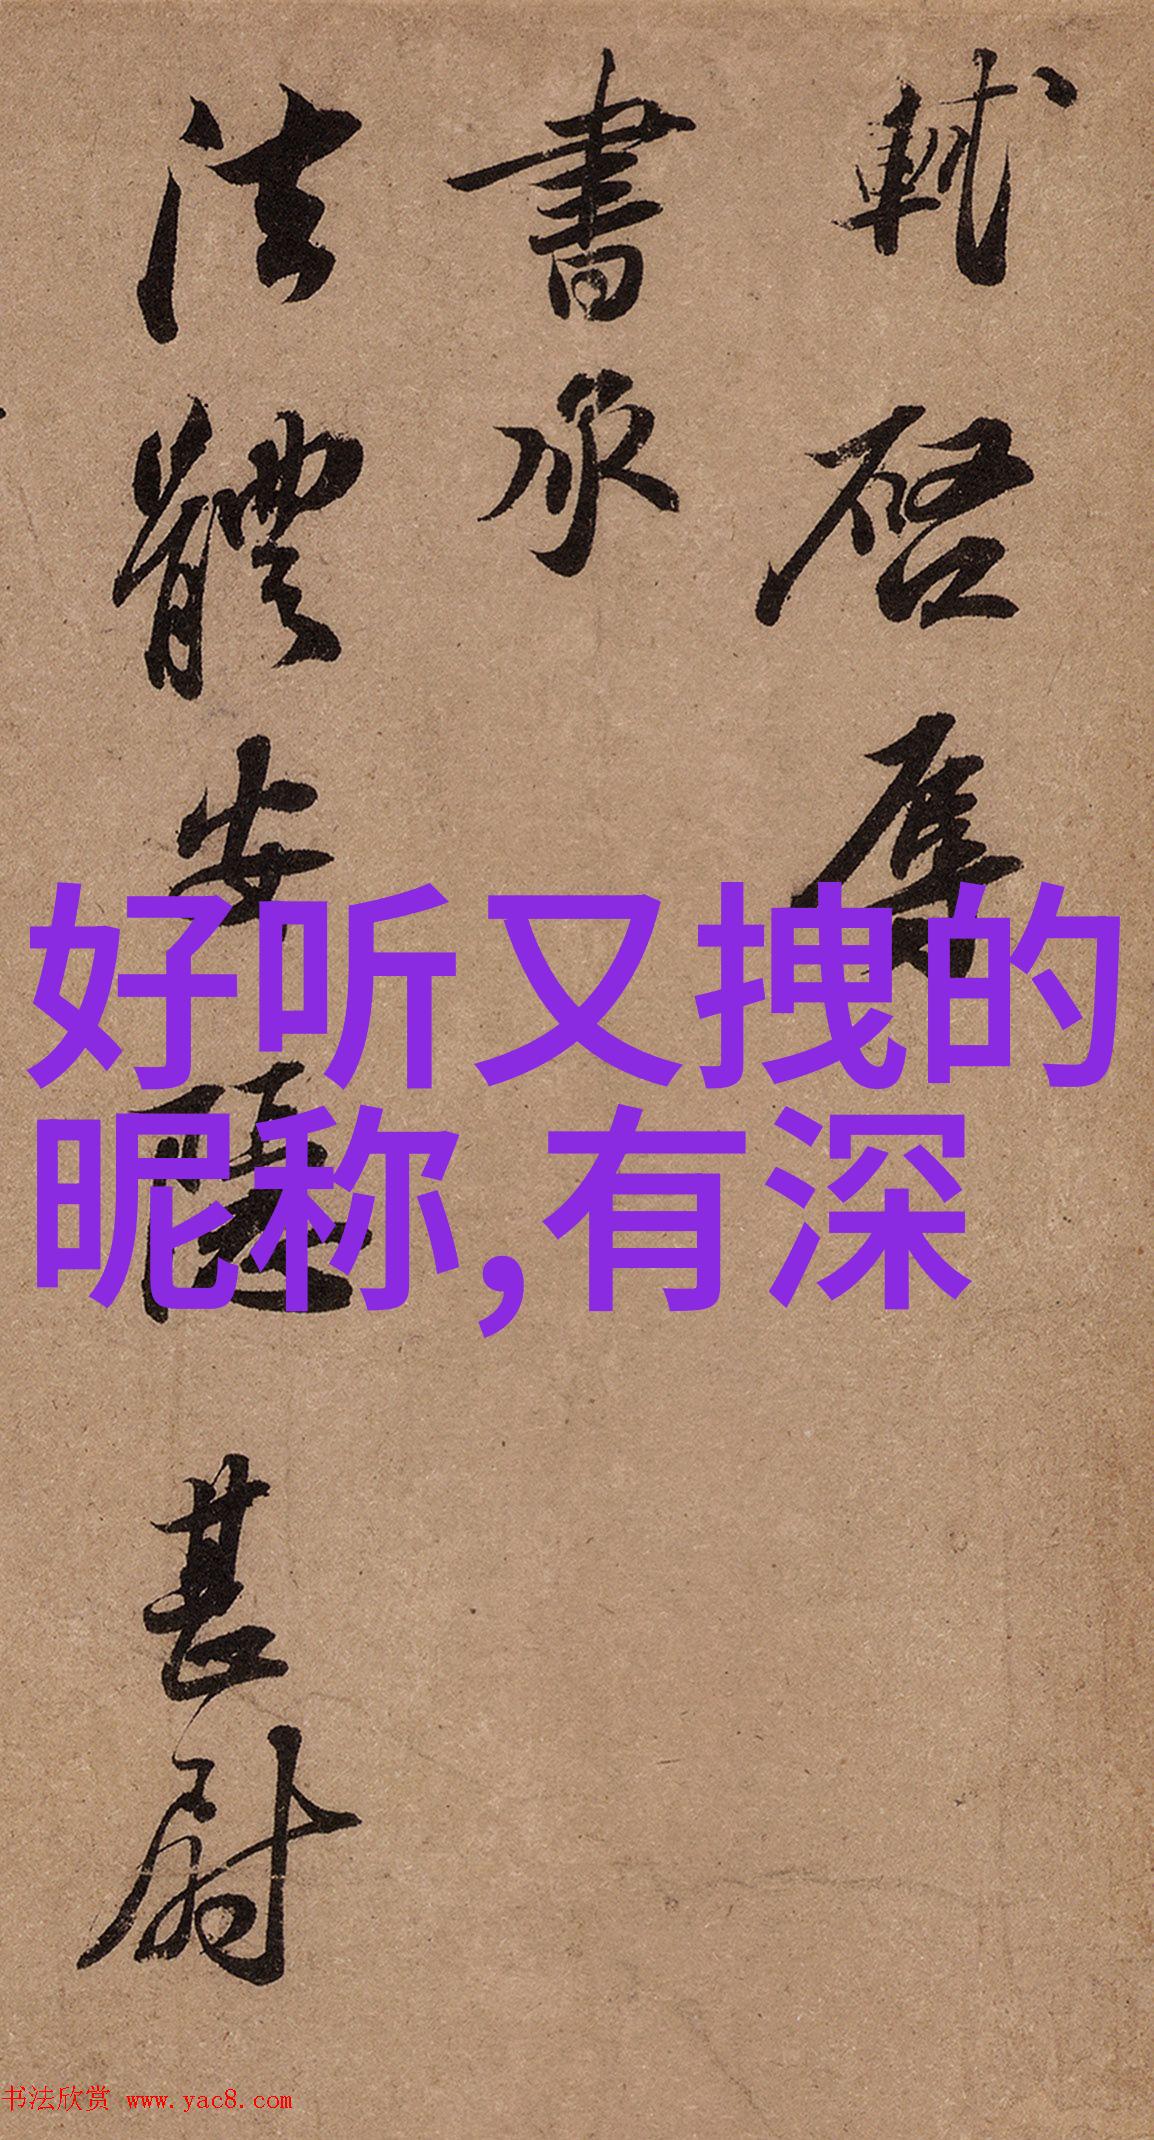 軾啓辱
書承
法體安隱甚慰
好听又拽的
昵称,有深
书法欣赏 www.yac8.com